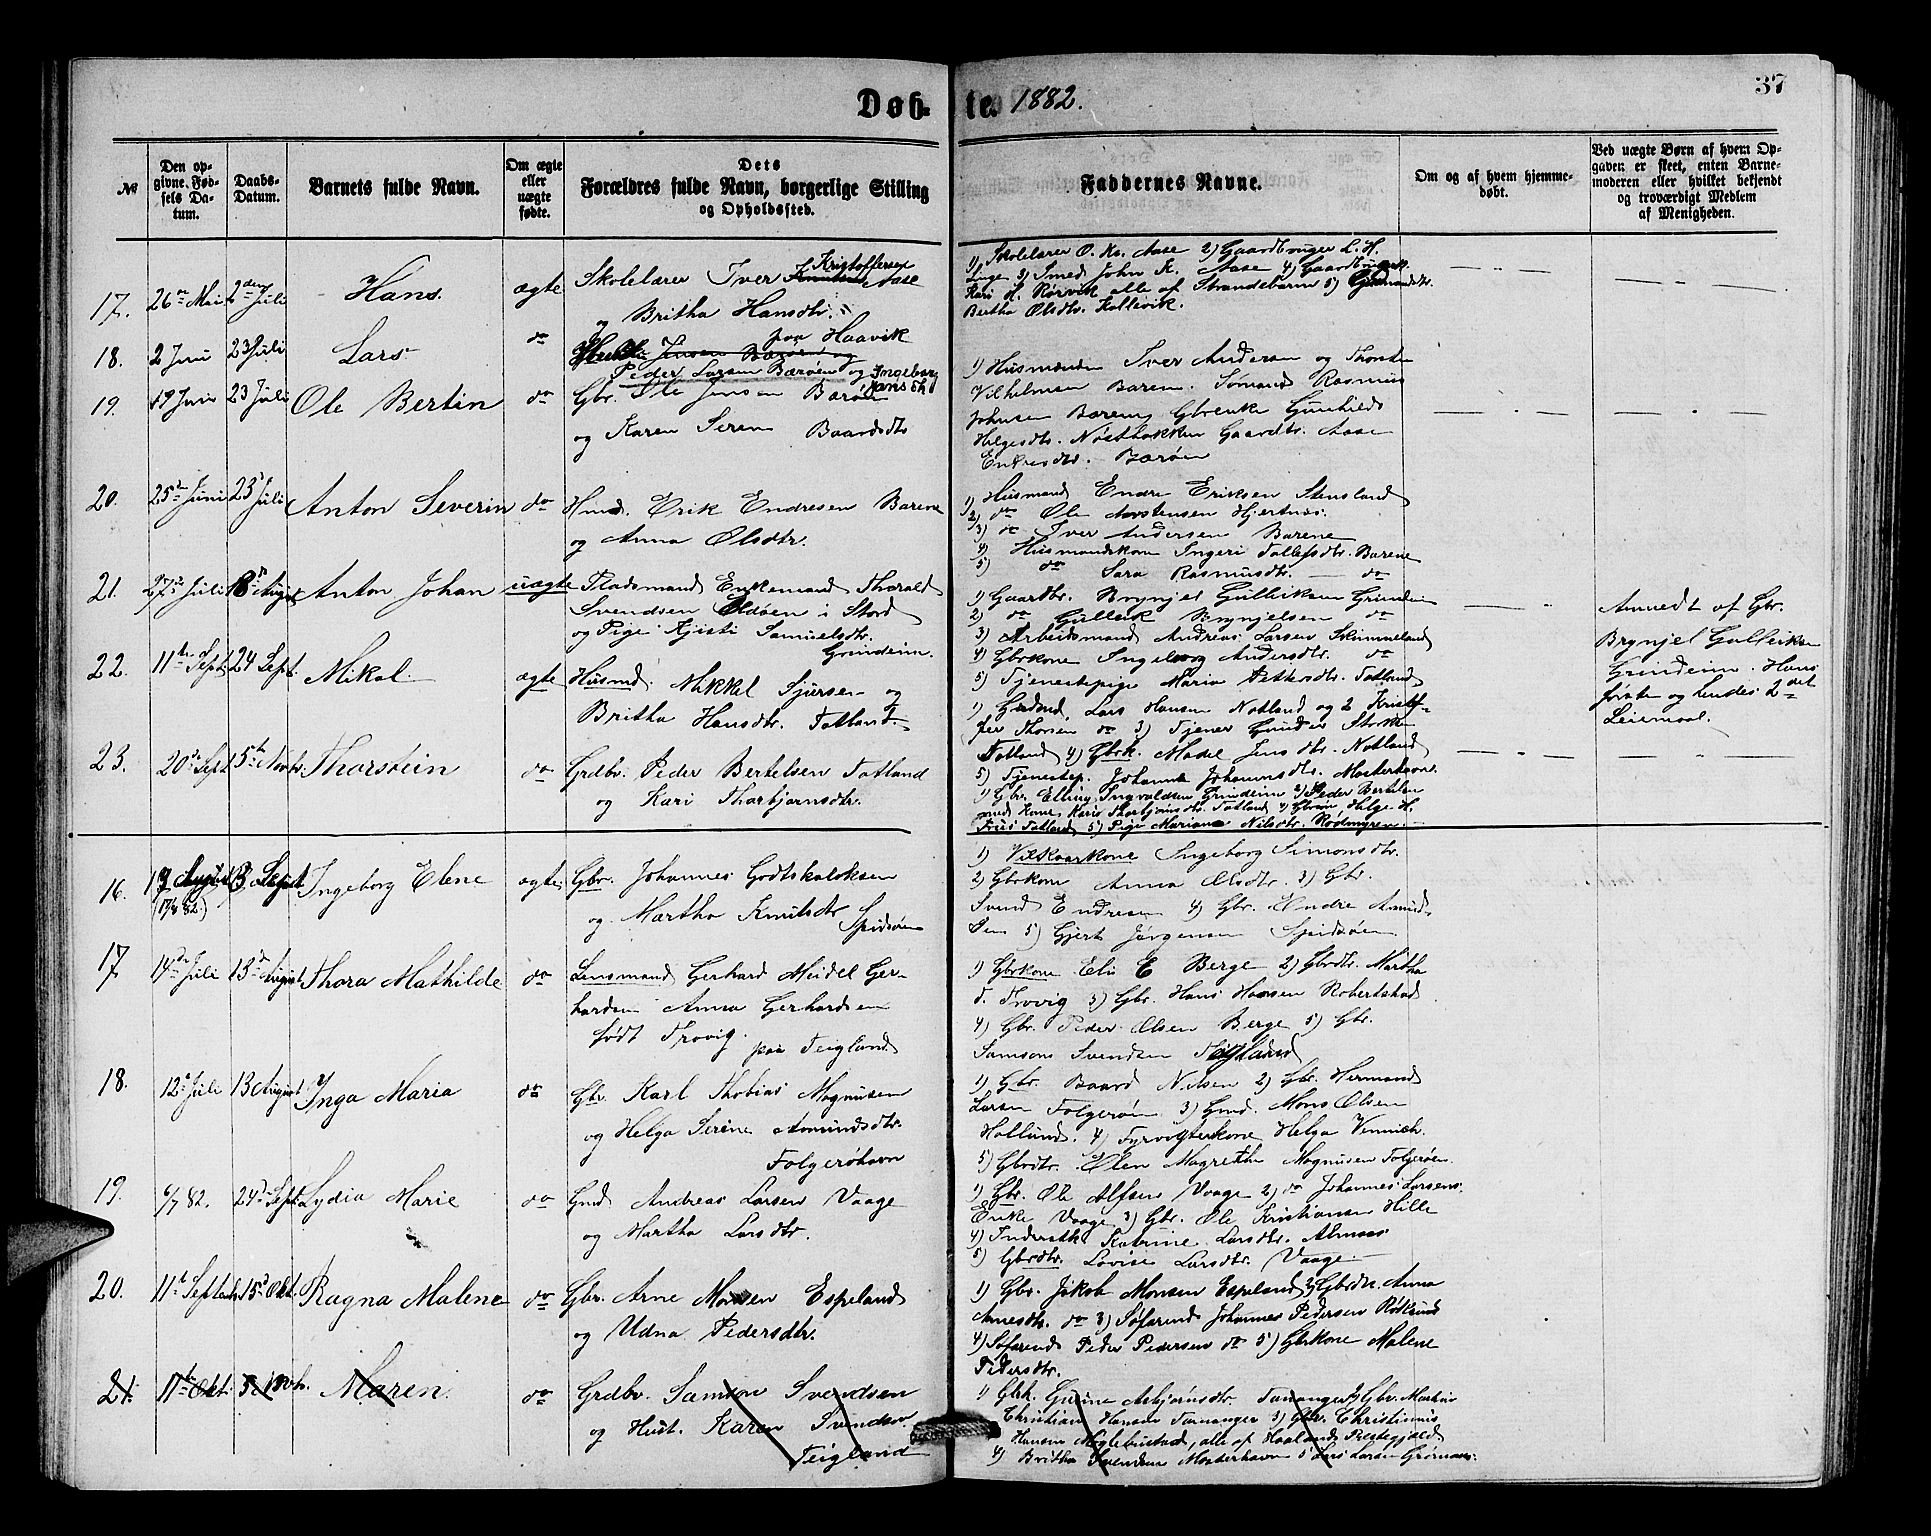 37
Døb- te. 1882.
№
Den op-
givne Fød-
sels Da-
tum.
Daabs-
Datum.
Barnets fulde Navn.
Om ægte
eller
uægte
fødte.
Dets
Forældres fulde Navn, borgerlige Stilling
og Opholdssted.
Faddernes Navne.
Om og af hvem hjemme-
døbt.
Ved uægte Børn af hvem Op-
gaven er skeet, enten Barne-
moderen eller hvilket bekjendt
og troværdigt Medlem
af Menigheden.
17. 26de Mai 2den Juli Hans ægte
Kristoffersen
Skolelærer Iver Knutsen Aase
og Britha Hansdtr.
paa Haavik
1) Skolelærer O. Ks. Aase 2) Gaardbruger L. H.
3) Smed John K. Aase 4)
Kari H. Rørvik alle af Strandebarm 5)
Bertha Olsdtr. Kallevik.
18. 2 Juni 23 Juli Lars do
Jensen Barøen og
Peder Larsen Bærøen og Ingeborg
Hansdtr
19. 19 Juni 23 Juli Ole Bertin do
Gbr. Ole Jensen Barøen
og Karen Seren Baardsdtr
1) Husmænden Iver Andersen og
Vilhelmsen Barene. Sømand Rasmus
Johnsen Barene, Gbrenke Gunhild
Helgesdtr. Nøstbakken Gaardbr. Aase
Endresdtr. Barøen
20. 25de Juni 23de Juli Anton Severin do
Hmd. Erik Endresen Barene
og Anna Olsdtr.
1) Husmand Endre Eriksen Stensland
2) do Ole Hjertnæs.
3) do Iver Andersen Barene
4) Husmandskone Ingeri Tollefsdtr. Barene
5) do Sara Rasmusdtr. — do
21. 27de Juli August Anton Johan uægte
Pladsmand Enkemand Tharald
Svendsen Eldøen i Stord
og Pige Kjisti Samuelsdtr.
Grindeim.
1) Gaardbr. Brynjel Gulleiksen Grindeim
2) do Gulleik Brynjelsen do
3) Arbeidsmand Andreas Larsen Skimmeland
4) Gbrkone Ingeborg Andersdtr. do
5) Tjenestepige Maria Pettersdtr. Tatland
Anmedt af Gbr.
Brynjel Gulleiksen
Grindeim. Hans
første og hendes 2det
Leiermaal.
22. 11te Sept. 24 Sept. Mikal ægte
Husmd. Mikkel Sjursen og
Britha Hansdtr. Tatland
1) Lars Hansen Notland og 2
Thorsen do 3) Tjener Gunder
Tatland 4) Gbrk. Madel Jensdtr. Notland
5) Tjenestep. Johanna Johannesdtr. Mosterhavn.
23. 20de Sept 5te Novbr. Tharstein do
Grdbr. Peder Bertelsen Tatland
og Kari Tharbjørnsdtr.
1) Gbr. Elling Ingvaldsen Grindeim 2) Peder Bertelsen
med Kone Kari Tharbjørnsdtr. Tatland 4) Helge H.
Tatland 5) Pige Mariane Nilsdtr. Rødmyren
16. August Sept Ingeborg Elene ægte
(17/8 82.)
Gbr. Johannes Godtskalksen
og Martha Knutsdtr
Spidsøen
1) Vilkaarkone Ingeborg Simonsdtr.
2) Gbrkone Anna Olsdtr. 3) Gbr.
Svend Endresen 4) Gbr. Endre
5) Gjert Jørgensen Spidsøen
17 14de Juli 13de August Thora Mathilde do
Lensmand Gerhard Meidel Ger-
hardsen Anna Gerhardsen
født Trovig.
paa Teigland
1) Gbrkone Eli E Berge 2) Gbrdtr. Martha
T. Trovig 3) Gbr. Hans Hansen Robertstad
4) Gbr. Peder Olsen Berge 5) Gbr.
Samson Svendsen Teigland
18. 12te Juli 13 August Inga Maria do
Gbr. Karl Thobias Magnusen
og Helga Serine Amundsdtr.
Folgerøhavn
1) Gbr. Baard Nilsen 2) Gbr. Hermand
Larsen Folgerøen 3) Gmd. Mons Olsen
Hollund. 4) Fyrvogterkone Helga
5) Gbrdtr. Olen Magrethe Magnusen Folgerøen.
19. 6/7 82. 24de Sept. Lydia Marie do
Gmd Andreas Larsen Vaage
og Martha Larsdtr.
1) Gbr. Ole Alfsen Vaage 2) do Johannes Larsens
Enke Vaage 3) Gbr. Ole Kristiansen Hille
4) Katrine Larsdtr. Almaas
5) Gbrdtr. Lovise Larsdtr. Vaage
20. 11te Septembr. 15de Okt. Ragna Malene do
Gbr. Arne Monsen Espeland
og Udna Pedersdtr.
1) Gbr. Jakob Monsen Espeland 2) Gbrdtr. Anna
Arnesdtr. do 3) Søfarend Johannes Pedersen
4) Søfarend Peder Pedersen do 5) Gbrkone Malene
Pedersdtr.
21. 11te Okt. 5 Novbr. Maren do
Grdbr. Samson Svendsen
og Hust. Karen Svendsen
Teigland
1) Gbrk. Asbjørnsdtr. Tananger 2) Gbr. Martin
Christian Hansen Tananger 3) Gbr. Christinius
Hansen, alle af Haalands Prestegjeld
4) Britha Svendsen Mosterhavn 5 Lars Larsen